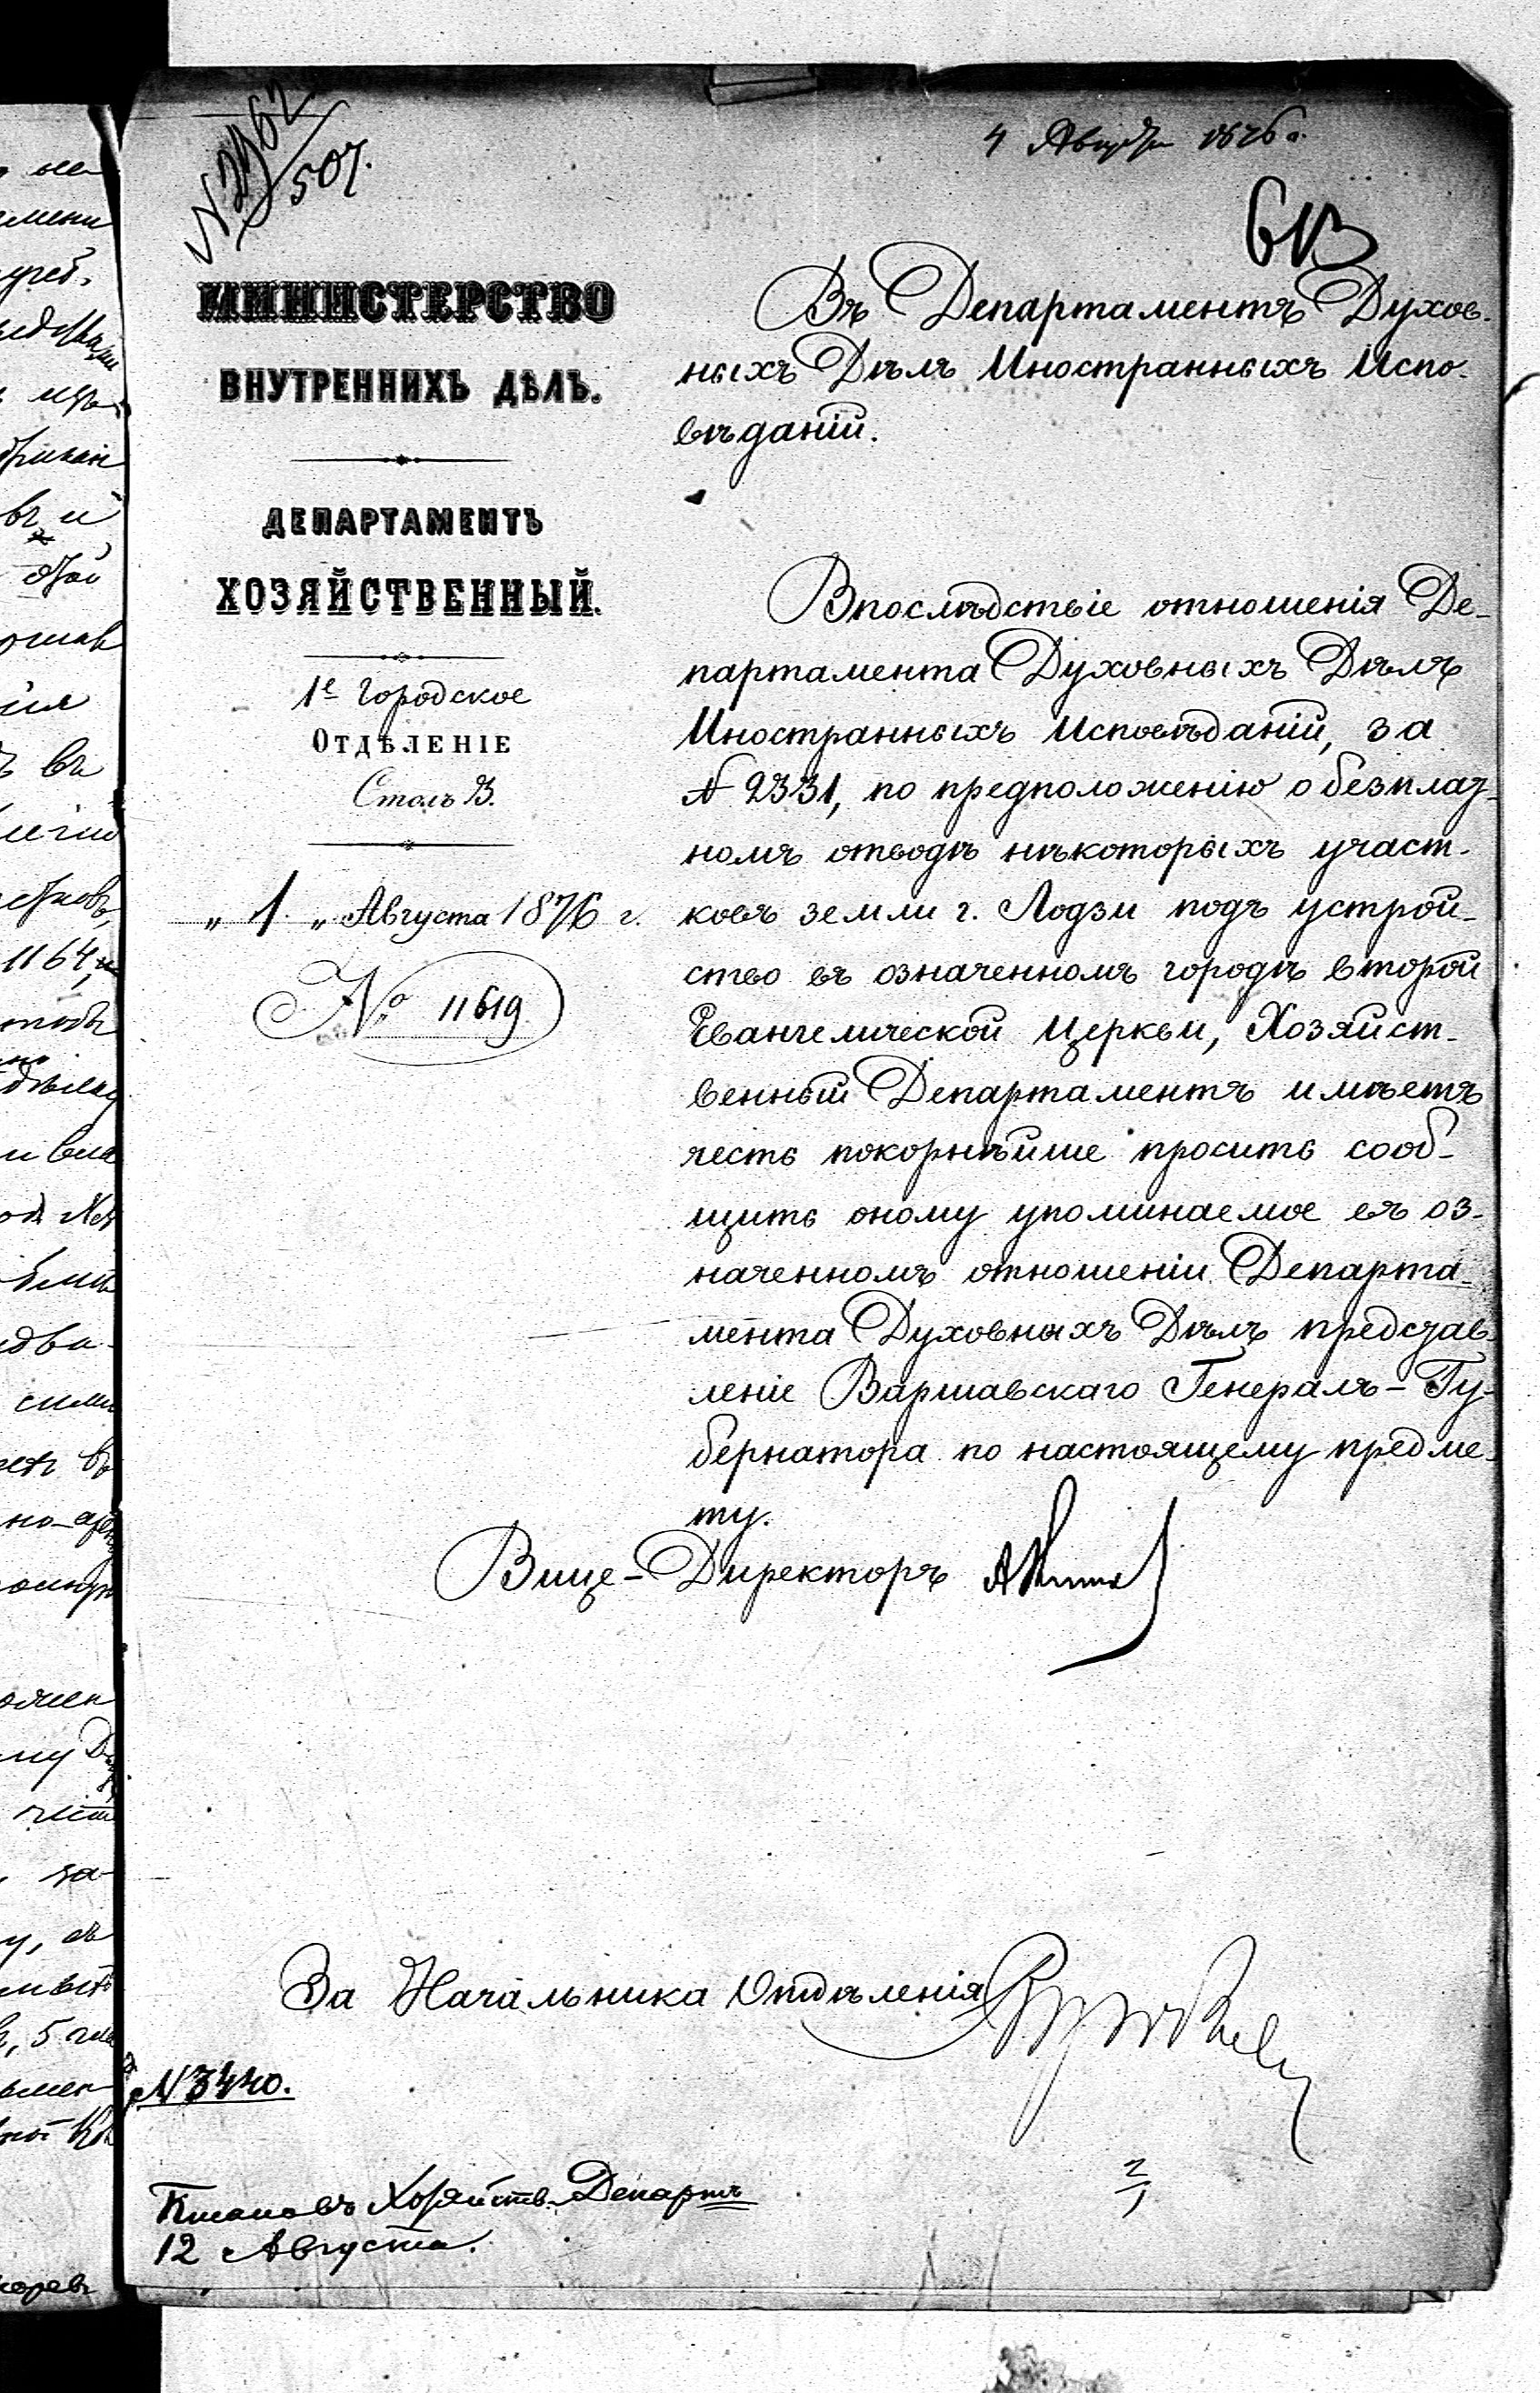 4 Августа 1876 г.
МИНИСТЕРСТВО
ВНУТРЕННИХЪ ДѢЛЪ.
ДЕПАРТАМЕНТЪ
ХОЗЯЙСТВЕННЫЙ.
1е Городское
ОТДѢЛЕНІЕ
Столъ 3.
„ 1 „ Августа 1876 г.
№ 11619
Въ Департаментъ Духов-
ныхъ Дѣлъ Иностранныхъ Испо-
вѣданій.
Впослѣдствіе отношенія Де-
партамента Духовныхъ Дѣлъ
Иностранныхъ Исповѣданій, за
№ 2331, по предположенію о безплат-
номъ отводѣ нѣкоторыхъ участ-
ковъ земли г. Лодзи подъ устрой-
ство въ означенномъ городѣ второй
Евангелической Церкви, Хозяйст-
венный Департаментъ имѣетъ
честь покорнѣйше просить сооб-
щить оному упоминаемое въ оз-
наченномъ отношеніи Департа-
мента Духовныхъ Дѣлъ представ-
леніе Варшавскаго Генералъ-Гу-
бернатора по настоящему предме-
ту.
Вице-Директоръ
За Начальника Отдѣленія
№ 3440.
Хозяйств. Департ
12 Августа.